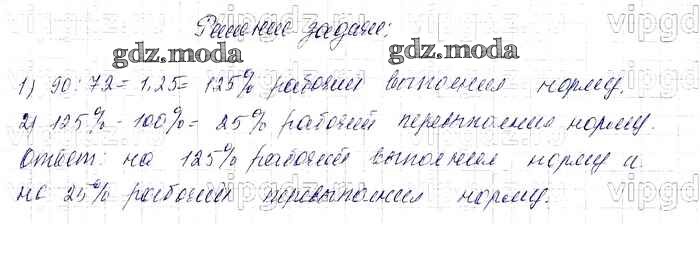 Решение задачи:
gdz.moda gdz.moda
1) 90:72=1,25=125% рабочий выполнил норму.
2) 125%-100%=25% рабочий перевыполнил норму.
Ответ: на 125% рабочий выполнил норму и
на 25% рабочий перевыполнил норму.